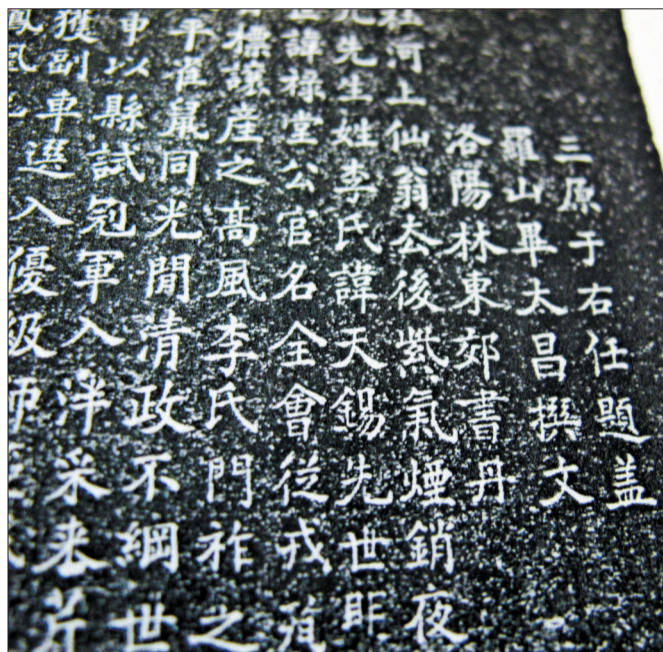 三原于右任題盖
羅山畢太昌撰文
洛陽林東郊書丹
河上仙翁厺後紫氣煙銷夜
先生姓李氏諱天錫先世即
諱祿堂公官名全會從戎
標讓産之高風李氏門祚之
平雀鼠同光閒清政不綱世
申以縣試冠軍入泮采来芹
獲副車選入優級師